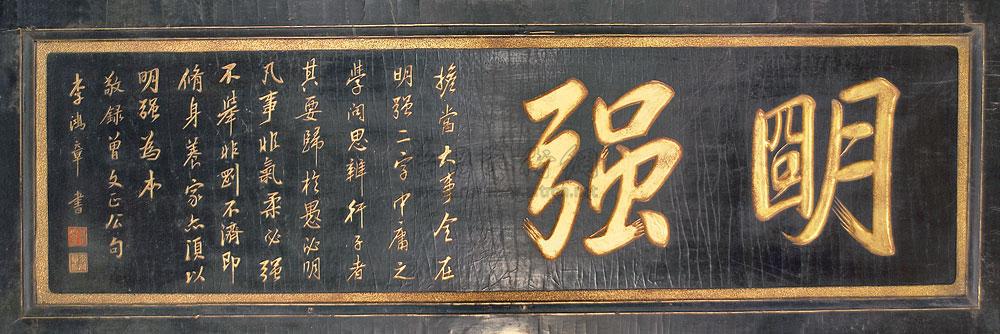 明强
擔當大事全在
明强二字中庸之
學問思辨行五者
其要歸於愚必明
凡事非氣柔必强
不舉非剛不濟即
脩身養家亦須以
明强為本
敬録曾文正公句
李鴻章書